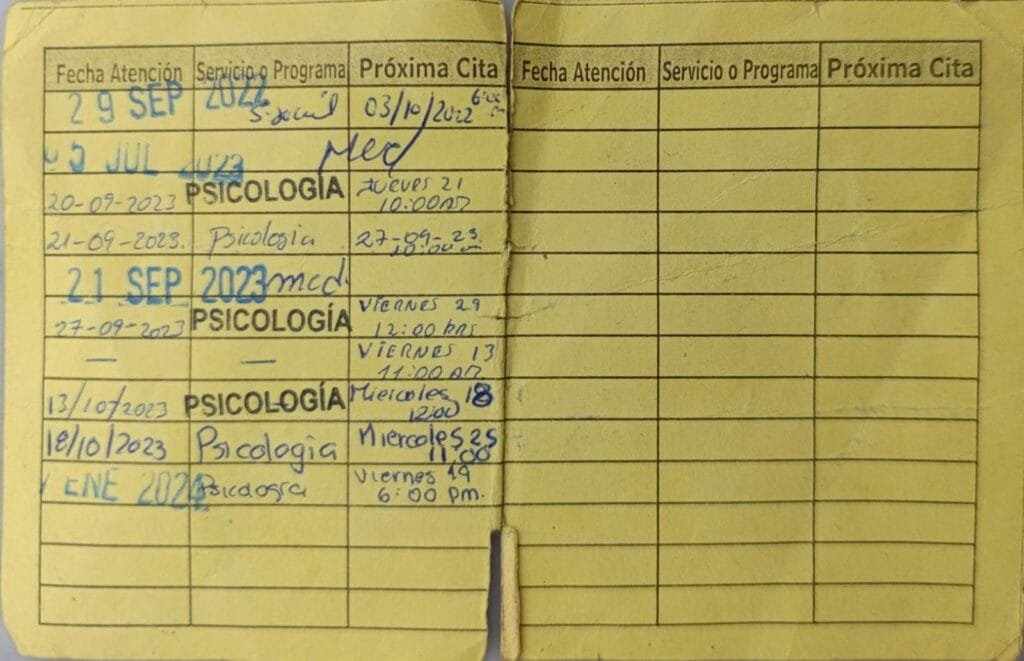 Fecha Atención Servicio o Programa Próxima Cita Fecha Atención Servicio o Programa Próxima Cita
29 SEP 2022 03/10/2022 6:00
05 JUL 2023 Med
20-09-2023 PSICOLOGÍA Jueves 21
10:00 am
21-09-2023. Psicologia 27-09-23.
10:00 am
21 SEP 2023 med.
27-09-2023 PSICOLOGÍA VIERNES 29
12:00 hrs
— — VIERNES 13
11:00 am
13/10/2023 PSICOLOGÍA Miercoles 18
12:00
18/10/2023 Psicologia Miercoles 25
11:00
ENE 2024 Psicologia Viernes 19
6:00 pm.